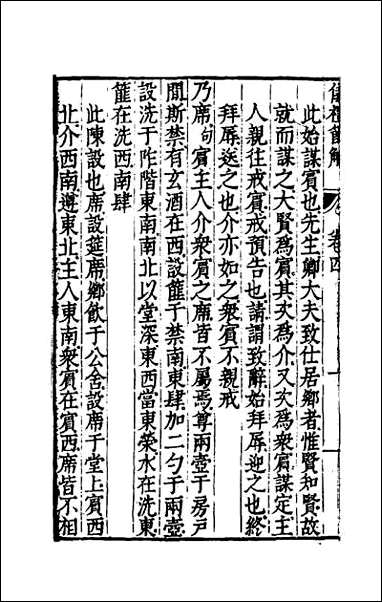 此始謀賓也先生鄉大夫致仕居鄉者惟賢知賢故
就而謀之大賢為賓其次為介又次為衆賓謀定主
人親往戒賓戒預告也請謂致辭始拜辱迎之也終
拜辱送之也介亦如之衆賓不親戒
乃席句賓主人介衆賓之席皆不屬焉尊兩壺于房戶
間斯禁有玄酒在西設篚于禁南東肆加二勺于兩壺
設洗于阼階東南南北以堂深東西當東榮水在洗東
篚在洗西南肆
此陳設也席設筵席鄉飲于公舍設席于堂上賓西
北介西南遵東北主人東南衆賓在賓西席皆不相
儀禮節解
卷四